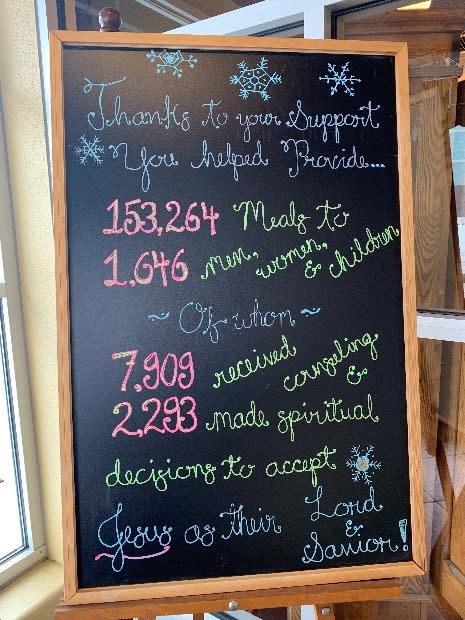 Thanks to your Support
You helped Provide...
153,264 Meals to
1,646 men, women, & children
~ Of whom ~
7,909 received counseling &
2,293 made spiritual
decisions to accept
Jesus as their Lord & Savior!